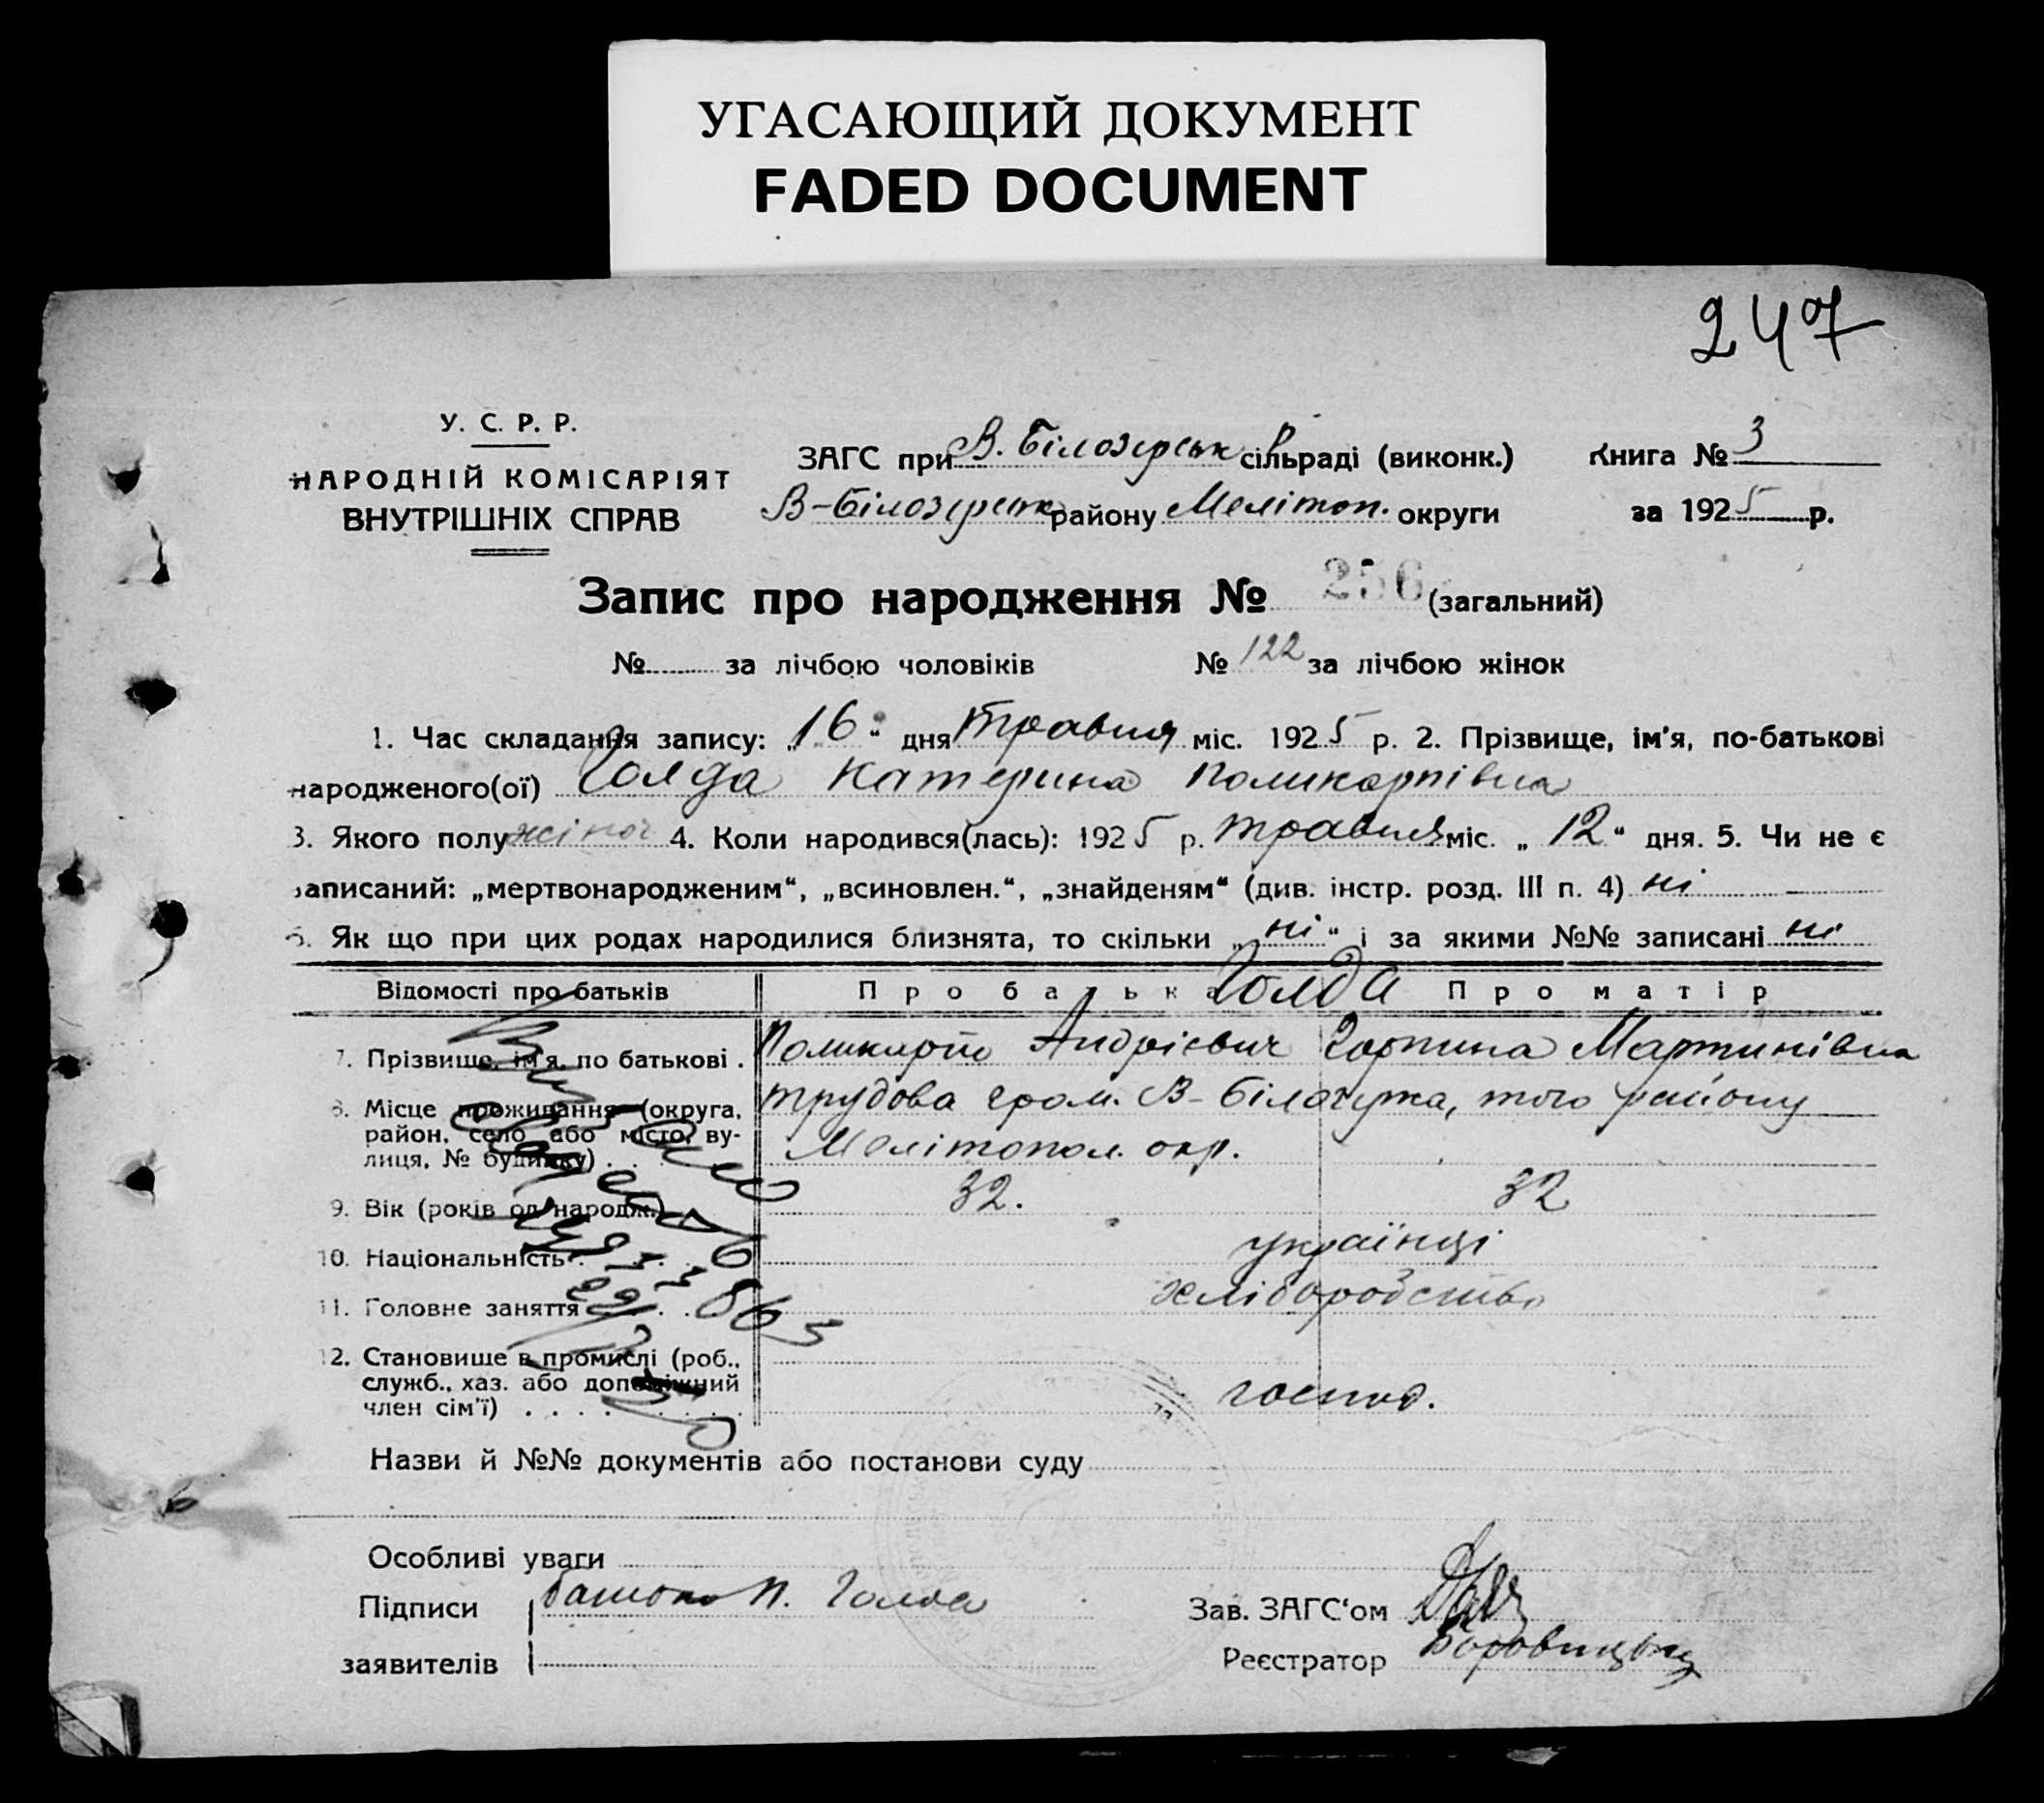 УГАСАЮЩИЙ ДОКУМЕНТ
FADED DOCUMENT
247
У. С. Р. Р.
НАРОДНІЙ КОМІСАРІЯТ
ВНУТРІШНІХ СПРАВ
ЗАГС при В. Білозерськ сільраді (виконк.) Книга № 3
В-Білозерськ району Мелітоп. округи за 1925 р.
Запис про народження № 256 (загальний)
№ за лічбою чоловіків № 122 за лічбою жінок
1. Час складання запису: „16“ дня травня міс. 1925 р. 2. Прізвище, ім'я, по-батькові
народженого(ої) Голда Катерина Поликарпівна
3. Якого полу жіноч 4. Коли народився(лась): 1925 р. травня міс. „12“ дня. 5. Чи не є
записаний: „мертвонародженим“, „всиновлен.“, „знайденям“ (див. інстр. розд. III п. 4) ні
6. Як що при цих родах народилися близнята, то скільки „ні“ і за якими №№ записані ні
Відомості про батьків Про батька Голда Про матір
7. Прізвище, ім'я, по батькові . Поликарп Андрієвич Мартинівна
8. Місце проживання (округа, район, село або місто, ву-
лиця, № будинку) . . трудова гром. В-Білозерка, того району
Мелітопол. окр.
9. Вік (років од народж.) 32. 32
10. Національність українці
11. Головне заняття хліборобство
12. Становище в промислі (роб.,
служб., хаз. або допоміжний
член сім'ї) . . . . господ.
Назви й №№ документів або постанови суду
Особливі уваги
Підписи батько П. Голда Зав. ЗАГС‘ом
заявителів Реєстратор